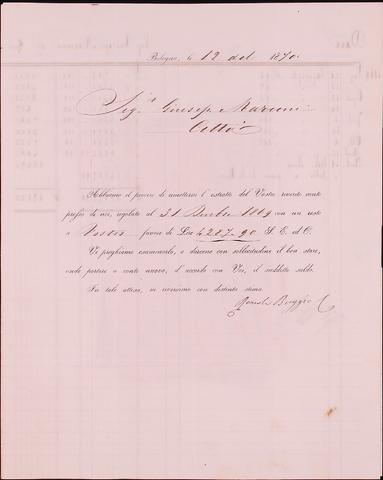 Bologna, li 12 del 1870.
Sig.r Giusepe Marconi
Città
Abbiamo il piacere di ammettervi l'estratto del Vostro riverito conto
presso di noi, regolato al 31 Dicembre 1869 con un resto
a Vostro favore di Lire 4287.90 S. E. ed O.
Vi preghiamo esaminarlo, e dircene con sollecitudine il ben stare,
onde portare a conto nuovo, d'accordo con Voi, il suddetto saldo.
In tale attesa, vi riveriamo con distinta stima.